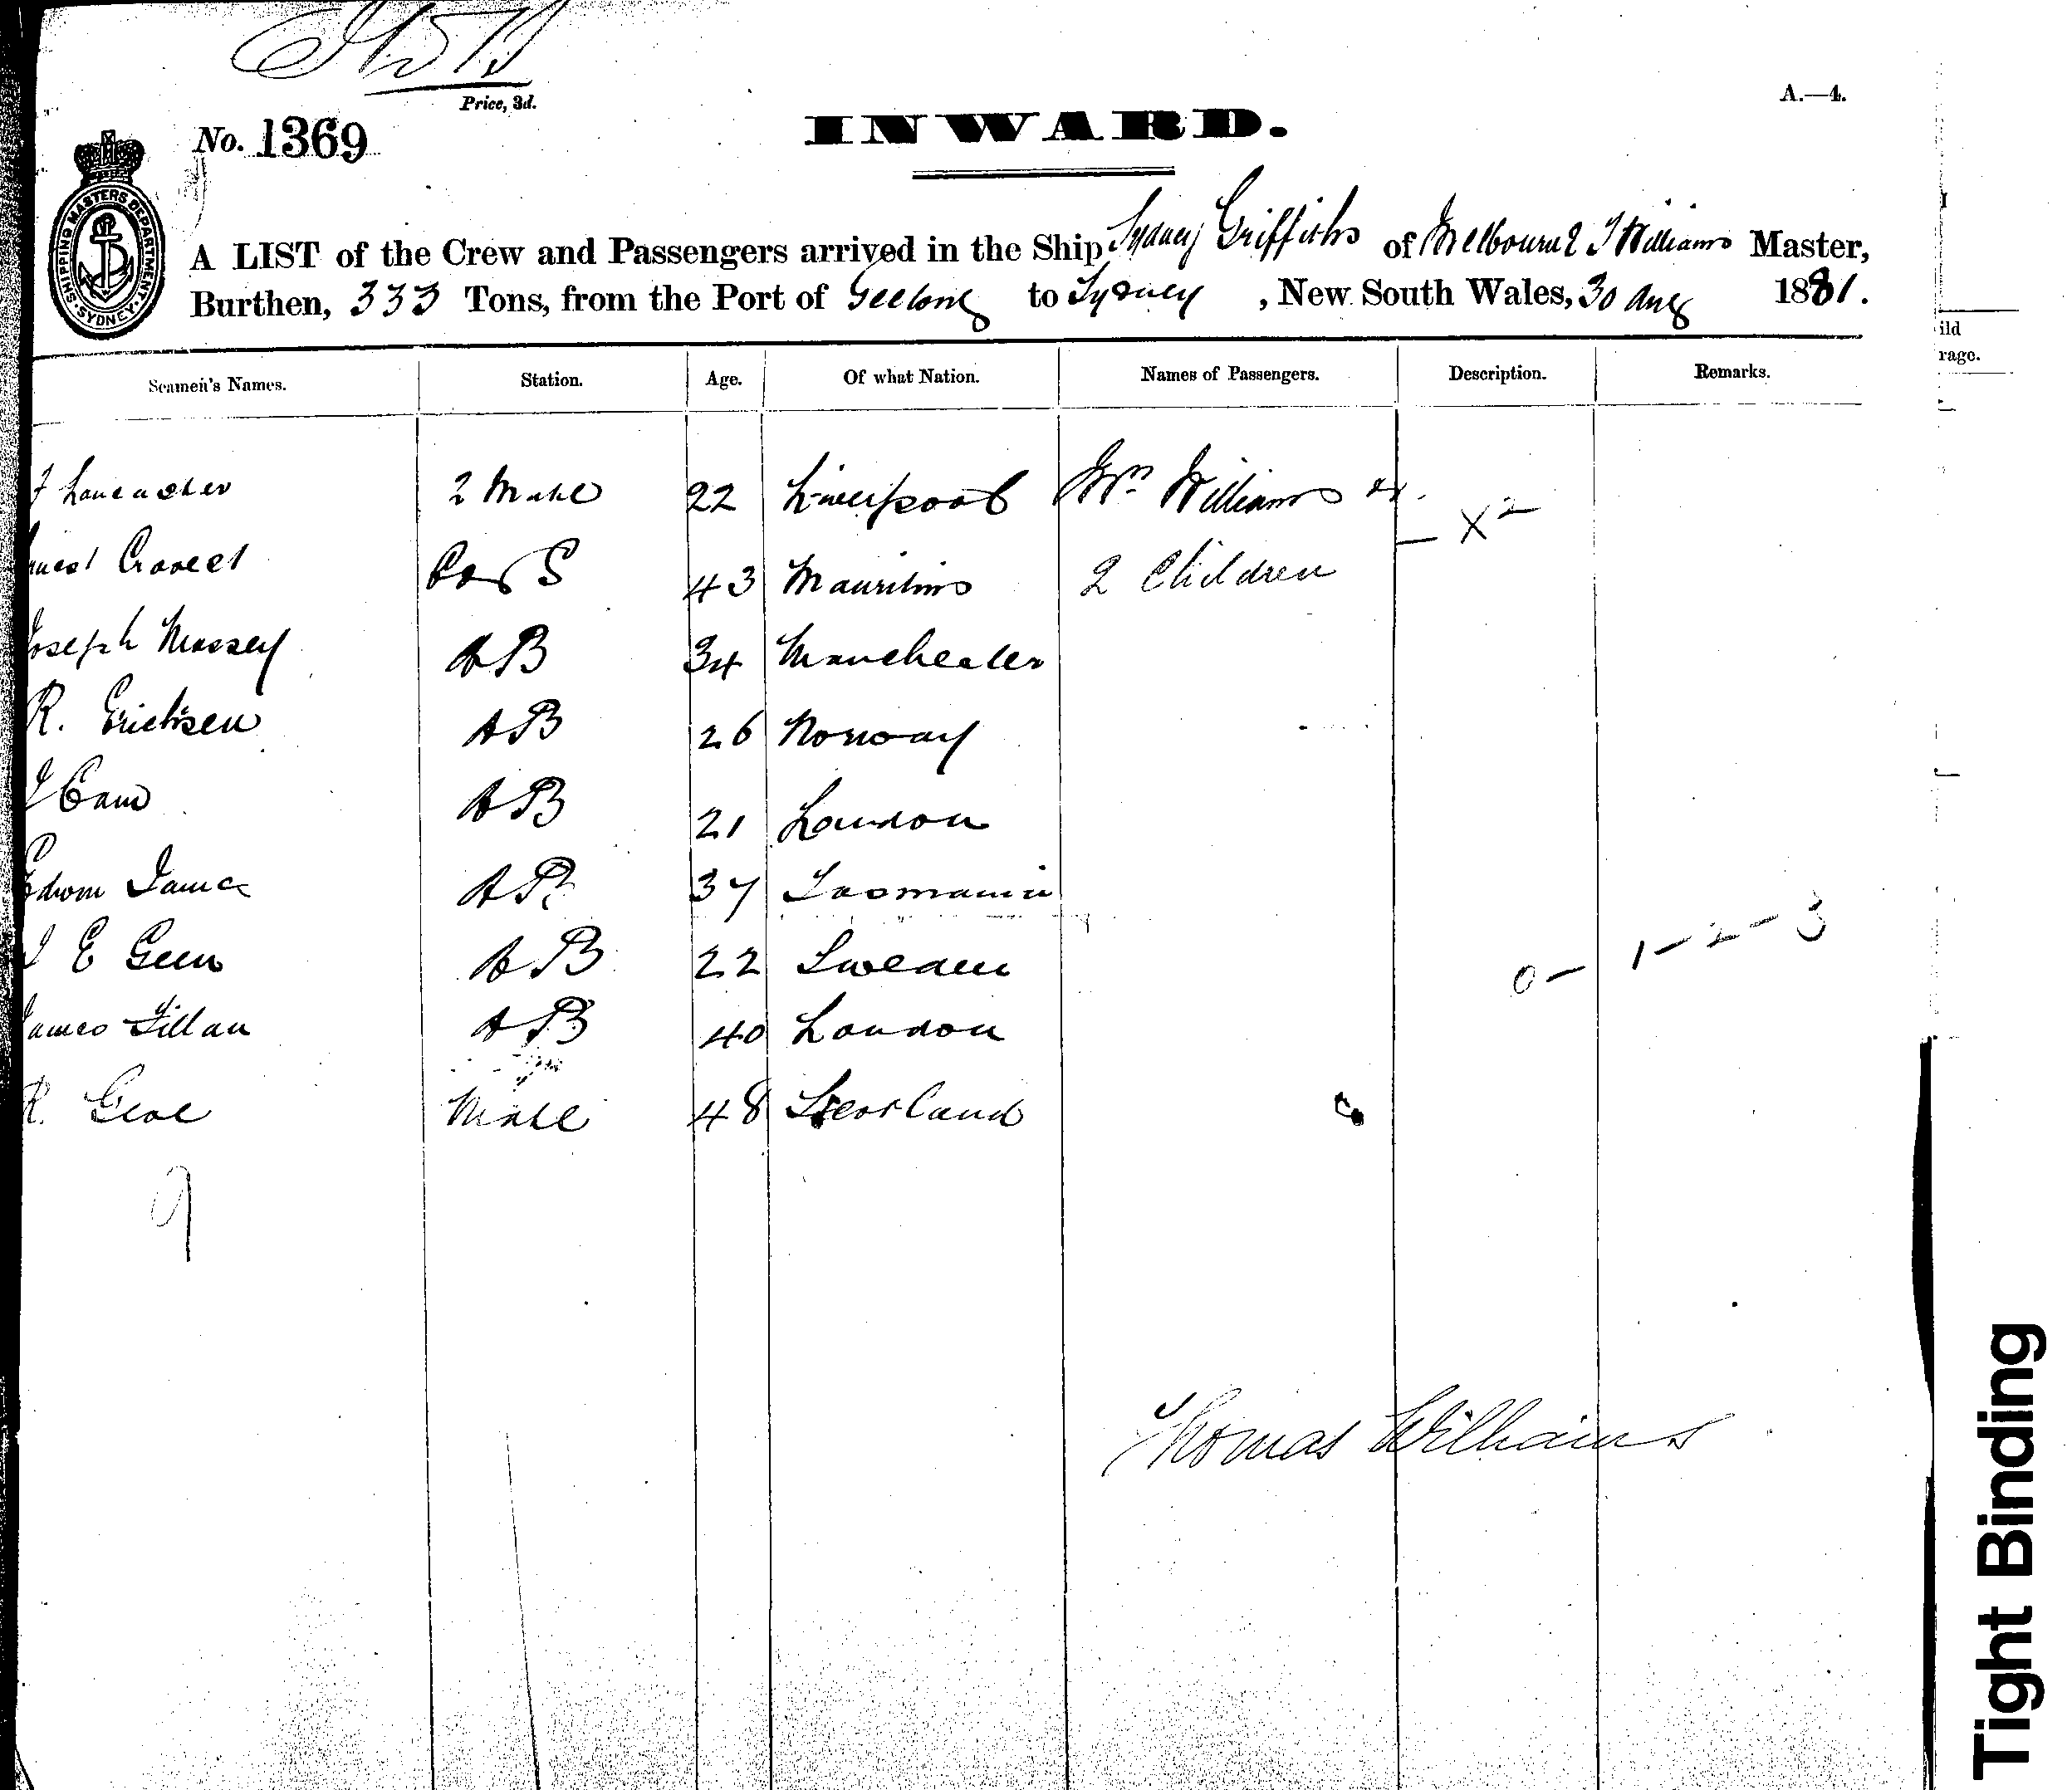 Price, 3d.
A.—4.
No. 1369
INWARD.
SHIPPING MASTERS DEPARTMENT. SYDNEY.
A LIST of the Crew and Passengers arrived in the Ship Sydney Griffiths of Melbourne T Williams Master,
Burthen, 333 Tons, from the Port of Geelong to Sydney, New South Wales, 30 Aug 1881.
ild
rage.
Seamen's Names. Station. Age. Of what Nation. Names of Passengers. Description. Remarks.
Lancaster 2 Mate 22 Liverpool Mrs Williams
— X 2
S 43 Mauritius 2 Children
Joseph Massey AB 34 Manchester
R. Erichsen AB 26 Norway
Cam AB 21 London
Edwin James AB 37 Tasmania
E Geen AB 22 Sweden
0 — 1 — 2 — 3
James Fillan AB 40 London
R. Mate 48 Scotland
9
Thomas Williams
Tight Binding